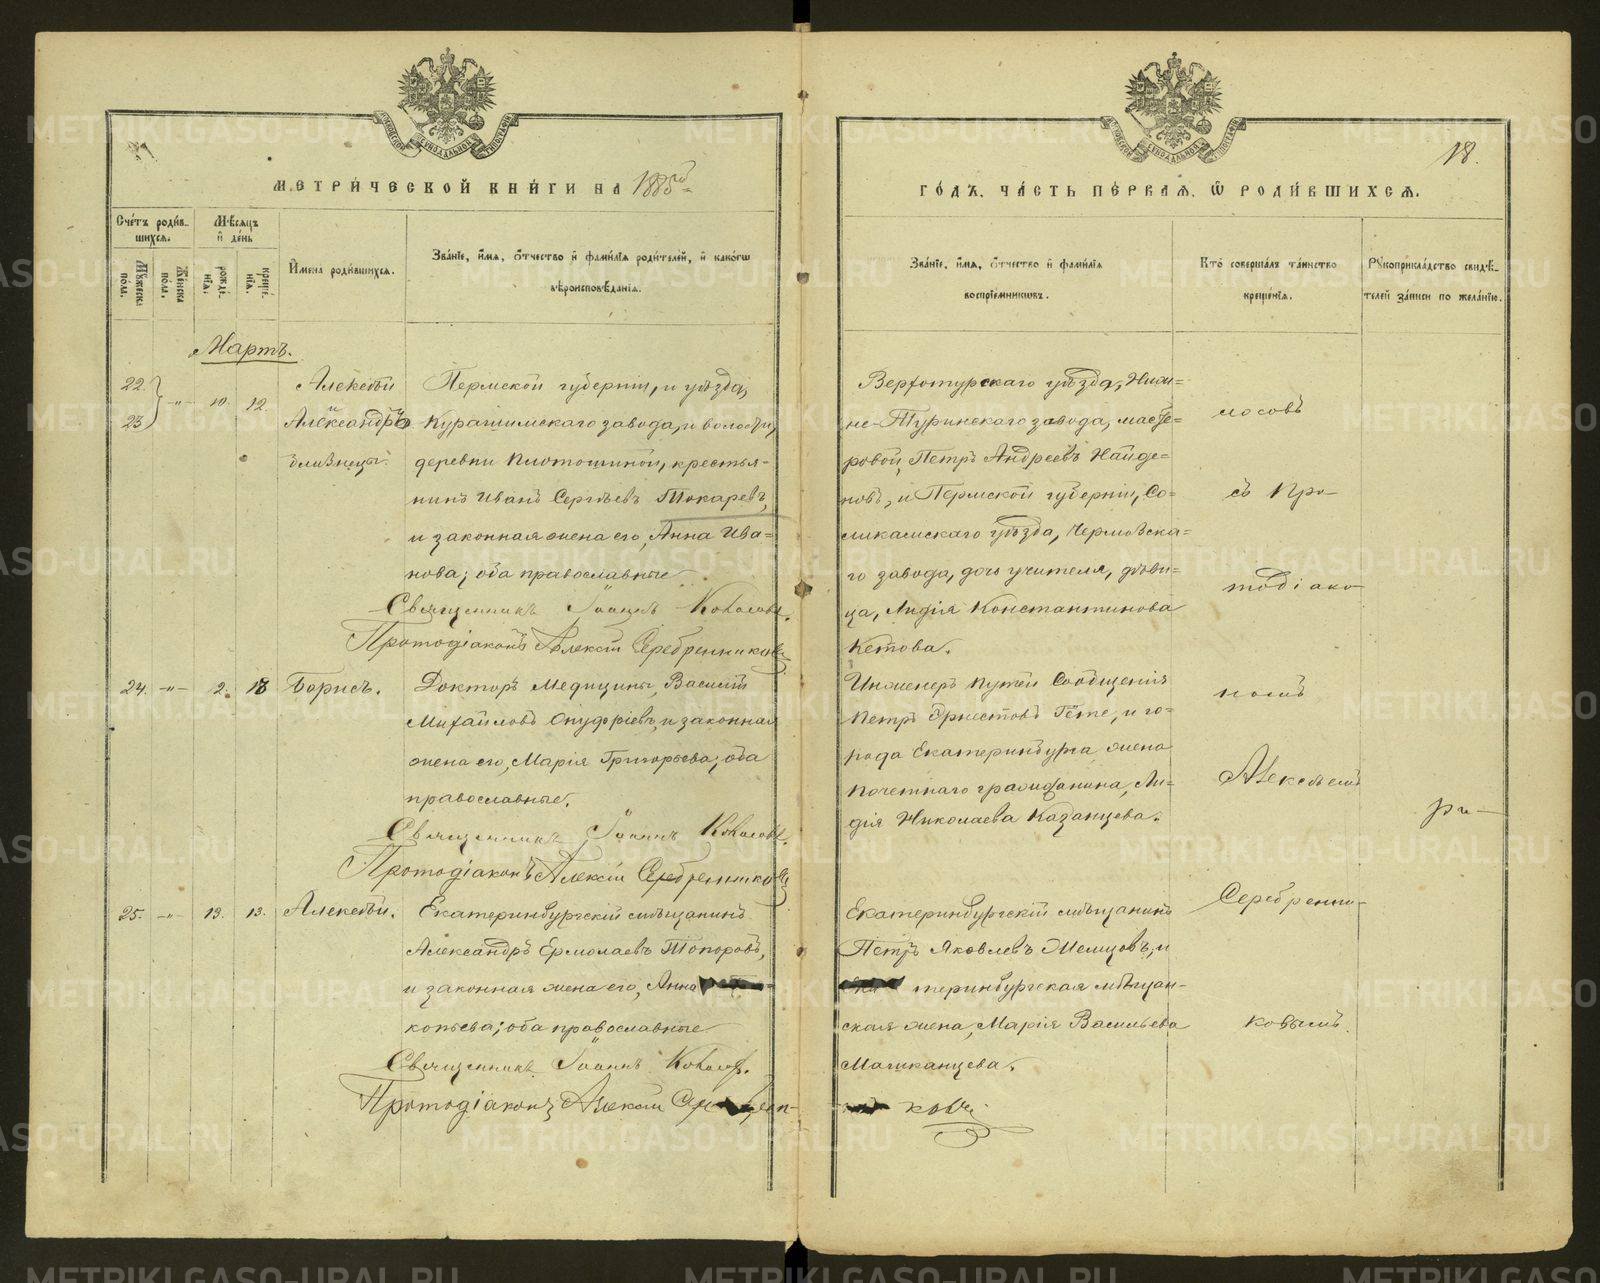 МЕТРИ́ЧЕСКОЙ КНИ́ГИ НА 1885й
ГО́ДЪ, ЧА́СТЬ ПЕ́РВАЯ, Ѡ РОДИ́ВШИХСЯ.
18.
Сче́тъ роди́в-
шихся.
Мѣ́сяцъ
и де́нь
Мꙋ́жеска по́ла.
Же́нска по́ла.
рожде́нїѧ.
креще́нїѧ.
И́мена роди́вшихся.
Зва́нїе, и́мя, о́тчество и фами́лїя роди́телей, и како́гѡ
вѣроисповѣ́данїя.
Зва́нїе, и́мя, о́тчество и фами́лїя
воспрїе́мникѡвъ.
Кто̀ соверша́лъ та́инство
креще́нїя.
Рꙋкоприкла́дство свидѣ́-
телей за́писи по жела́нїю.
Мартъ.
22.
23.
-"-
10.
12.
Алексѣй
и
Александръ
близнецы.
Пермской губерніи, и уѣзда,
Курашимскаго завода, и волости,
деревни Плотошиной, крестья-
нинъ Иванъ Сергѣевъ Токаревъ,
и законная жена его, Анна Ива-
нова; оба православные
Священникъ Іоаннъ Коволовъ.
Протодіаконъ Алексій Серебренниковъ
Верхотурскаго уѣзда, Ниж-
не-Туринскаго завода, масте-
ровой, Петръ Андреевъ Найде-
новъ, и Пермской губерніи, Со-
ликамскаго уѣзда, Чермозска-
го завода, дочь учителя, дѣви-
ца, Лидія Константинова
Кетова.
лосовъ
съ Про-
тодіако-
24.
-"-
2.
18
Борисъ.
Докторъ Медицины, Василій
Михайловъ Онуфріевъ, и законная
жена его, Марія Григорьева; оба
православные.
Священникъ Іоаннъ Коволовъ.
Протодіаконъ Алексій Серебренниковъ
Инженеръ Путей Сообщенія
Петръ Эрнестовъ Гёте, и го-
рода Екатеринбурга жена
Почетнаго гражданина, Ли-
дія Николаева Казанцева.
номъ
Алексѣемъ
Серебренни-
ковымъ.
ри-
25.
-"-
13.
13.
Алексѣй.
Екатеринбургскій мѣщанинъ
Александръ Ермолаевъ Топоровъ,
и законная жена его, Анна
копьева; оба православные
Священникъ Іоаннъ Коволовъ.
Протодіаконъ Алексій
Екатеринбургскій мѣщанинъ
Петръ Яковлевъ Мелцовъ, и
теринбургская мѣщан-
ская жена, Марія Васильева
Машканцева.
ковъ